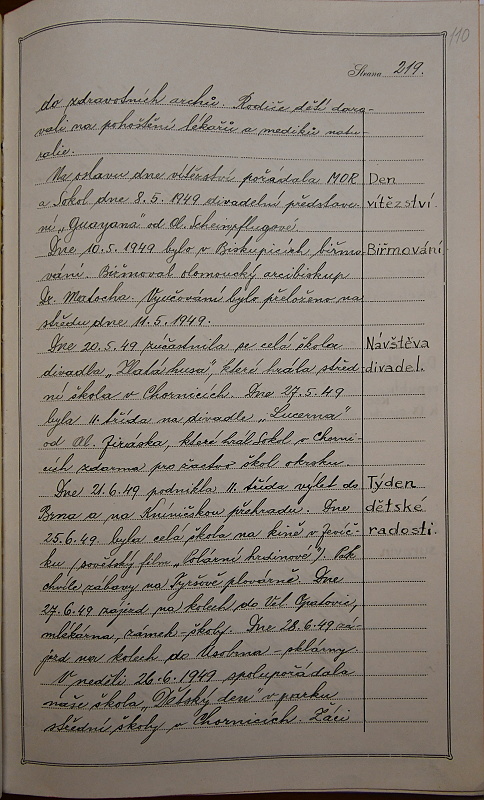 110
Strana 219.
do zdravotních archů. Rodiče dětí daro-
vali na pohoštění lékařů a mediků natu-
ralie.
Na oslavu dne vítězství pořádala MOR
Den
a Sokol dne 8.5.1949 divadelní představe-
vítězství.
ní „Guayana" od Ol. Scheinpflugové.
Dne 10.5.1949 bylo v Biskupicích biřmo-
Biřmování
vání. Biřmoval olomoucký arcibiskup
Dr. Matocha. Vyučování bylo přeloženo na
středu dne 11.5.1949.
Dne 20.5.49 zúčastnila se celá škola
Návštěva
divadla „Zlatá husa", které hrála střed-
divadel.
ní škola v Chornicích. Dne 27.5.49
byla II. třída na divadle „Lucerna"
od Al. Jiráska, které hrál Sokol v Chorni-
cích zdarma pro žactvo škol okrsku.
Dne 21.6.49 podnikla II. třída výlet do
Týden
Brna a na Kníničskou přehradu. Dne
dětské
25.6.49. byla celá škola na kině v Jevíč-
radosti.
ku (sovětský film „Polární hrdinové"). Pak
chvíle zábavy na Tyršově plovárně. Dne
27.6.49 zájezd na kolech do Vel. Opatovic,
mlékárna, zámek - školy. Dne 28.6.49 zá-
jezd na kolech do Úsobrna - sklárny.
V neděli 26.6.1949 spolupořádala
naše škola „Dětský den" v parku
střední školy v Chornicích. Žáci